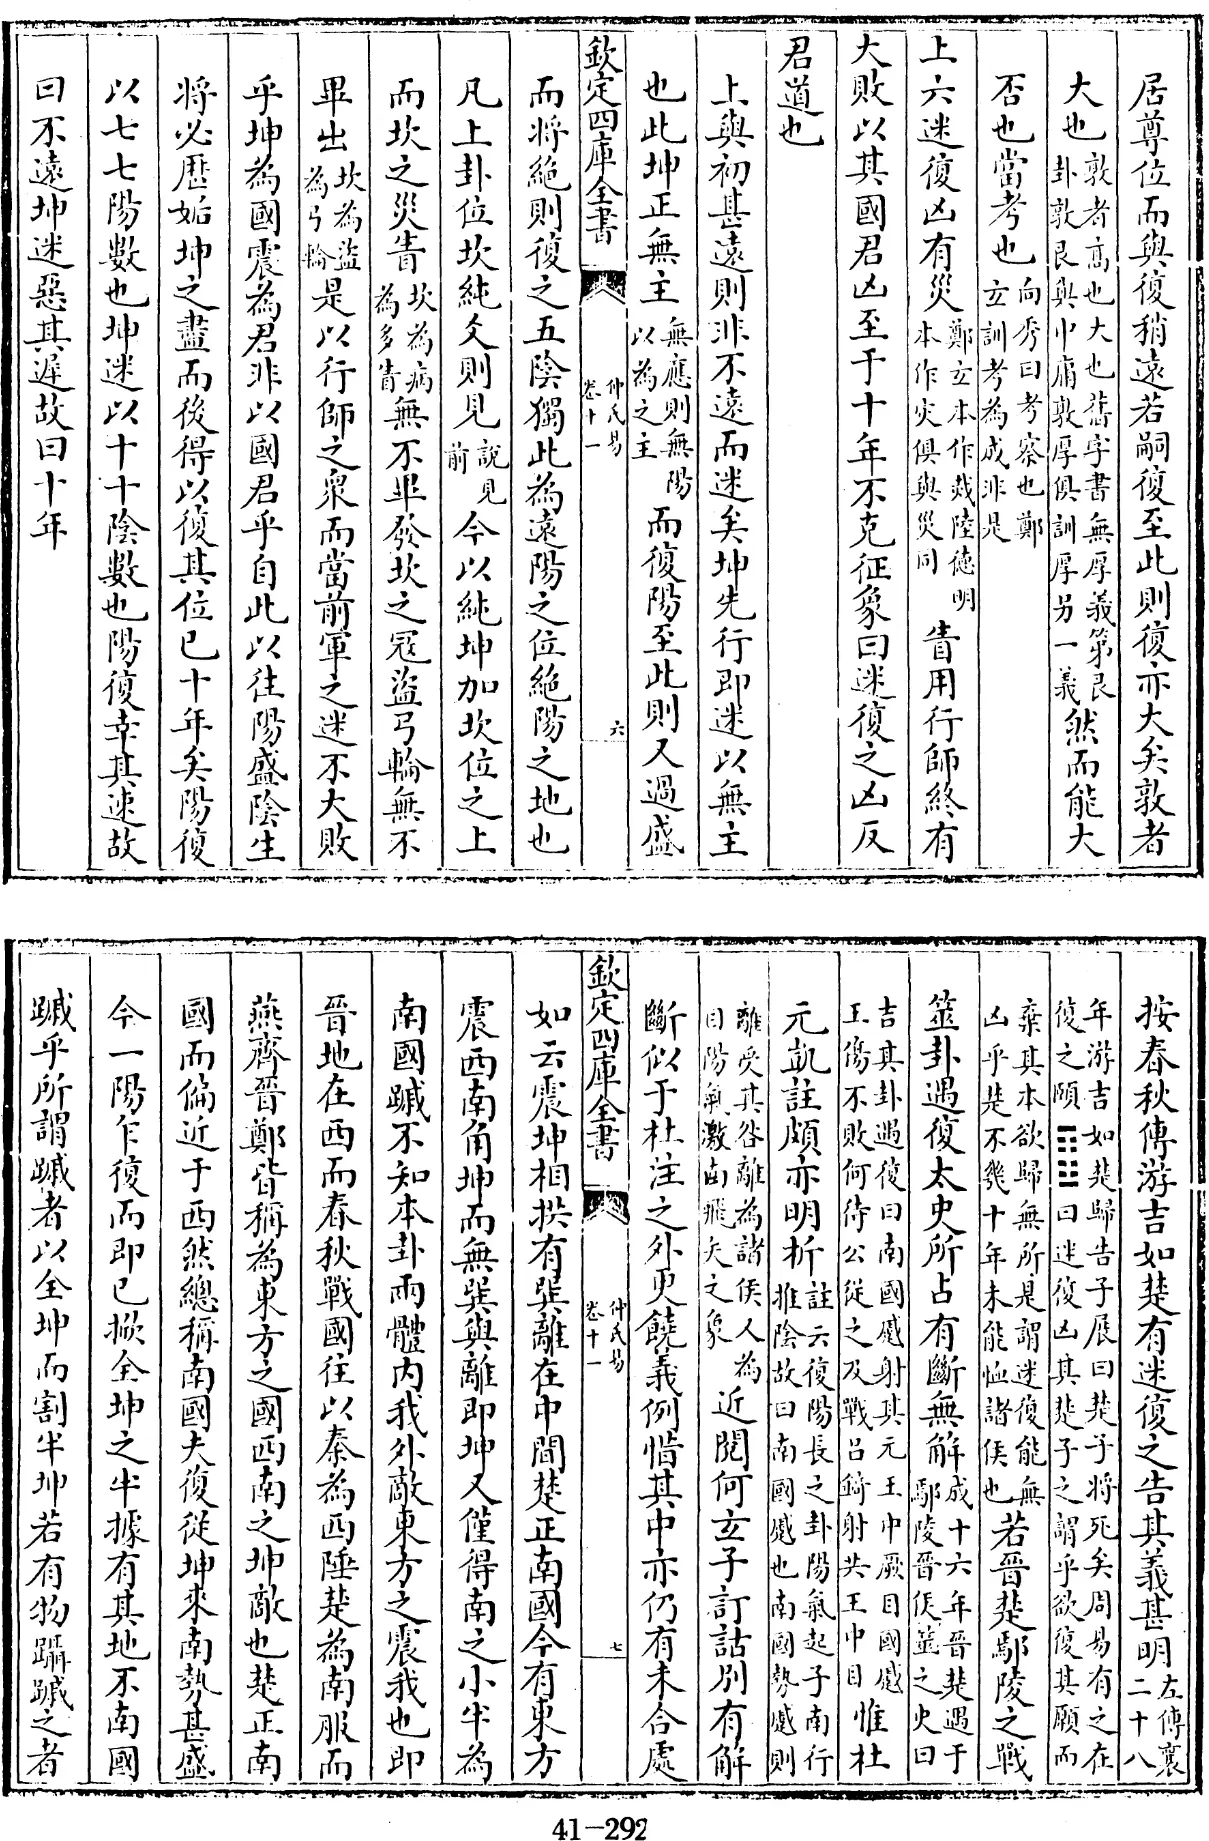 居尊位而與復稍遠若嗣復至此則復亦大矣敦者
大也敦者高也大也舊字書無厚義第艮卦敦艮與中庸敦厚俱訓厚另一義然而能大
否也當考也向秀曰考察也鄭玄訓考為成非是
上六迷復凶有災鄭玄本作烖陸德明本作灾俱與災同眚用行師終有
大敗以其國君凶至于十年不克征象曰迷復之凶反
君道也
上與初甚遠則非不遠而迷矣坤先行即迷以無主
也此坤正無主無應則無陽以為之主而復陽至此則又過盛
欽定四庫全書
仲氏易
卷十一
六
而將絕則復之五陰獨此為遠陽之位絕陽之地也
凡上卦位坎純爻則見說見前今以純坤加坎位之上
而坎之災眚坎為病為多眚無不畢發坎之冦盜弓輪無不
畢出坎為盜為弓輪是以行師之衆而當前軍之迷不大敗
乎坤為國震為君非以國君乎自此以往陽盛陰生
將必歷姤坤之盡而後得以復其位已十年矣陽復
以七七陽數也坤迷以十十陰數也陽復幸其速故
曰不遠坤迷惡其遲故曰十年
按春秋傳游吉如楚有迷復之告其義甚明左傳襄二十八
年游吉如楚歸告子展曰楚子將死矣周易有之在復之頤䷗曰迷復凶其楚子之謂乎欲復其願而
棄其本欲歸無所是謂迷復能無凶乎楚不幾十年未能恤諸侯也若晉楚鄢陵之戰
筮卦遇復太史所占有斷無解成十六年晉楚遇于鄢陵晉侯筮之史曰
吉其卦遇復曰南國䠞射其元王中厥目國䠞王傷不敗何待公從之及戰呂錡射共王中目惟杜
元凱註頗亦明析註云復陽長之卦陽氣起子南行推陰故曰南國䠞也南國勢䠞則
離受其咎離為諸侯人為目陽氣激南飛矢之象近閱何玄子訂詁別有解
斷似于杜注之外更饒義例惜其中亦仍有未合處
欽定四庫全書
仲氏易
卷十一
七
如云震坤相拱有巽離在中間楚正南國今有東方
震西南角坤而無巽與離即坤又僅得南之小半為
南國䠞不知本卦兩體内我外敵東方之震我也即
晉地在西而春秋戰國往以秦為西陲楚為南服而
燕齊晉鄭皆稱為東方之國西南之坤敵也楚正南
國而偏近于西然總稱南國夫復從坤來南勢甚盛
今一陽乍復而即已掀全坤之半據有其地不南國
䠞乎所謂䠞者以全坤而割半坤若有物躡䠞之者
41-292